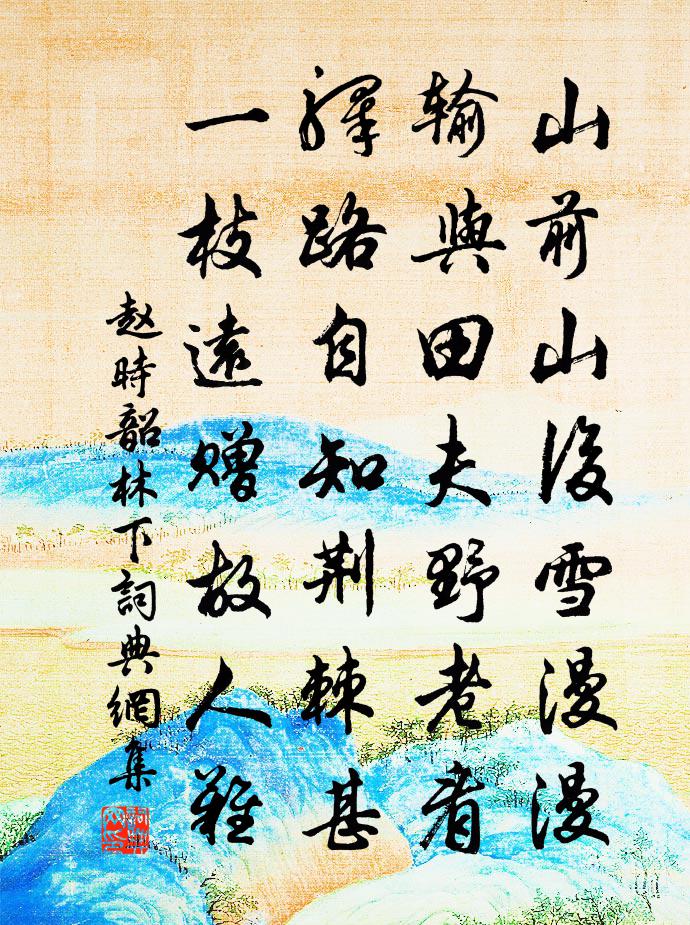 山前山後雪漫漫
輸與田夫野老看
驛路自知荊棘甚
一枝遠贈故人難
赵時韶林下詞典網集